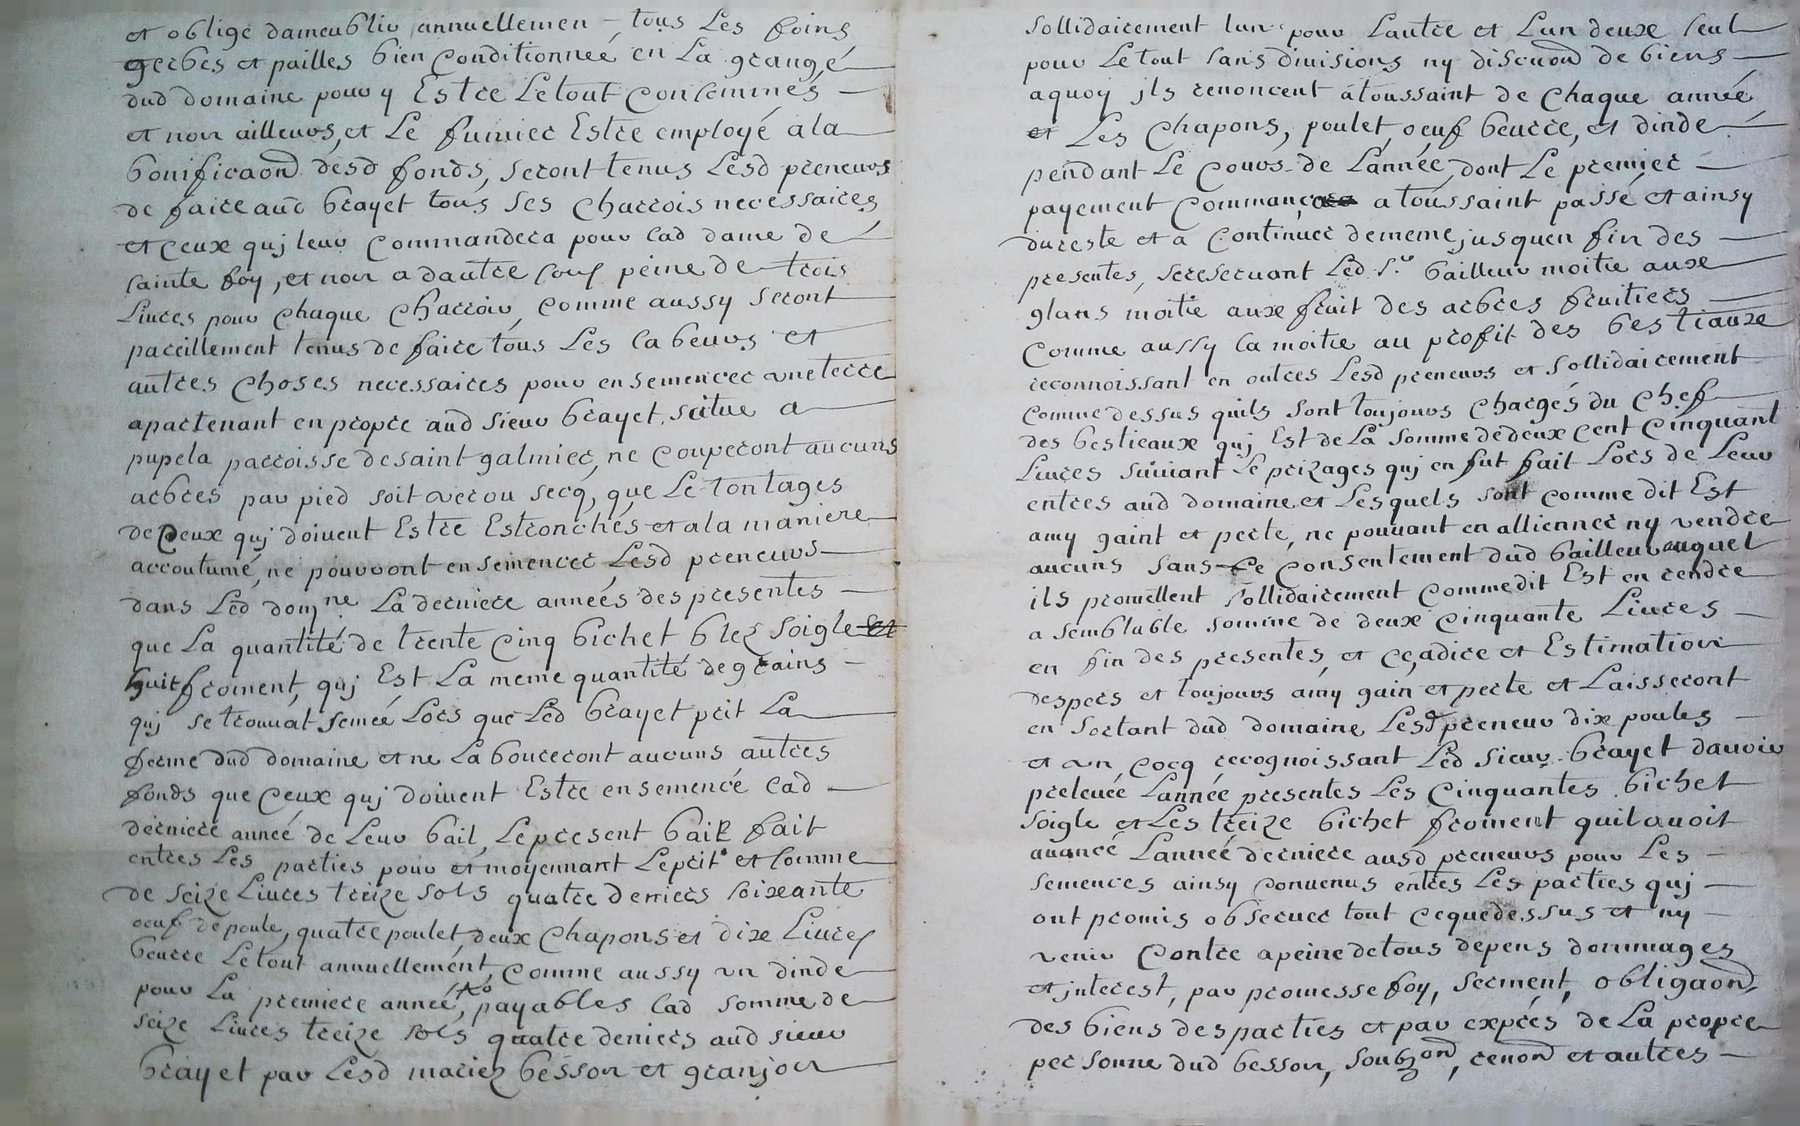 et obligé dameublir annuellemen tous Les foins
gerbes et pailles bien Conditionneé en La grangé
dud domaine pour y Estre Letout Consommés
et non ailleurs, et Le fumier Estre employé ala
bonificaõn desd fonds, seront tenus Lesd preneurs
de faire aud brayet tous ses charrois necessaires
et ceux quj leur Commandera pour lad dame de
sainte foy, et non adautre sous peine de trois
Livres pour chaque charroir, comme aussy seront
pareillement tenus de faire tous Les labeurs et
autres choses necessaires pour ensemencer vneterre
apartenant en propre aud sieur brayet, scitue a
pupela parroisse desaint galmier, ne couperont aucuns
arbres par pied soit verou secq, que Le tontages
de Ceux quj doivent Estre Estronchés et ala maniere
accoutumé, ne pourront ensemencer Lesd preneurs
dans Led domne La derniere anneés des presentes
que La quantité de trente Cinq bichet blez soigle et
huit froment, quj Est La meme quantité degrains
quj se trouvat semeé Lors que Led brayet prit La
ferme dud domaine et ne Laboureront aucuns autres
fonds que Ceux quj doivent Estre ensemencé lad
derniere anneé de Leur bail, Lepresent bail fait
entres Les parties pour et moyennant Leprit et somme
de seize Livres treize sols quatre deniers soixante
oeuf depoule, quatre poulet, deux chapons et dixe Livres
beurre Letout annuellement, comme aussy vn dinde
pour La premiere anneé, payables lad somme de
seize Livres treize sols quatre deniers aud sieur
brayet par Lesd mariez besson et granjon
sollidairement lun pour Lautre et Lun deux seul
pour Letout sans divisions ny discuõn de biens
aquoy jls renoncent átoussaint de chaque anneé
et Les chapons, poulet, oeuf beurre, et dinde
pendant Le Cours de Lannée, dont Le premier
payement Commança atoussaint passé et ainsy
dureste et a Continuer dememe jusquen fin des
presentes, sereservant Led Sr bailleur moitie auxe
glans moitie auxe fruit des arbres fruitiers
Comme aussy la moitie au profit des bestiauxe
reconnoissant en outres Lesd preneurs et sollidairement
comme dessus quils sont toujours chargés du chef
des bestieaux quj Est de La somme dedeux cent Cinquant
Livres suivant Le prizages quj en fut fait Lors de Leur
entres aud domaine et Lesquels sont comme dit Est
amy gaint et perte, ne pouvant en allienner ny vendre
aucuns sans Le Consentement dud bailleur auquel
ils promettent sollidairement Comme dit Est en rendre
a semblable somme de deux Cinquante Livres
en fin des presentes, et Ce, adire et Estimation
despers et toujours amy gain et perte et Laisseront
en sortant dud domaine Lesd preneur dix poules
et vn Cocq recognoissant Led sieur brayet davoir
preleveé Lannée presentes Les Cinquantes bichet
soigle et Les treize bichet froment quil avoit
avancé Lanneé derniere ausd preneurs pour Les
semences ainsy Convenus entres Les parties quj
ont promis observer tout Cequedessus et ny
venir Contre apeine detous depens dommages
et jnterest, par promesse foy, serment, obligaõn
des biens desparties et par exprés de La propre
personne dud besson, soubzon, renon et autres